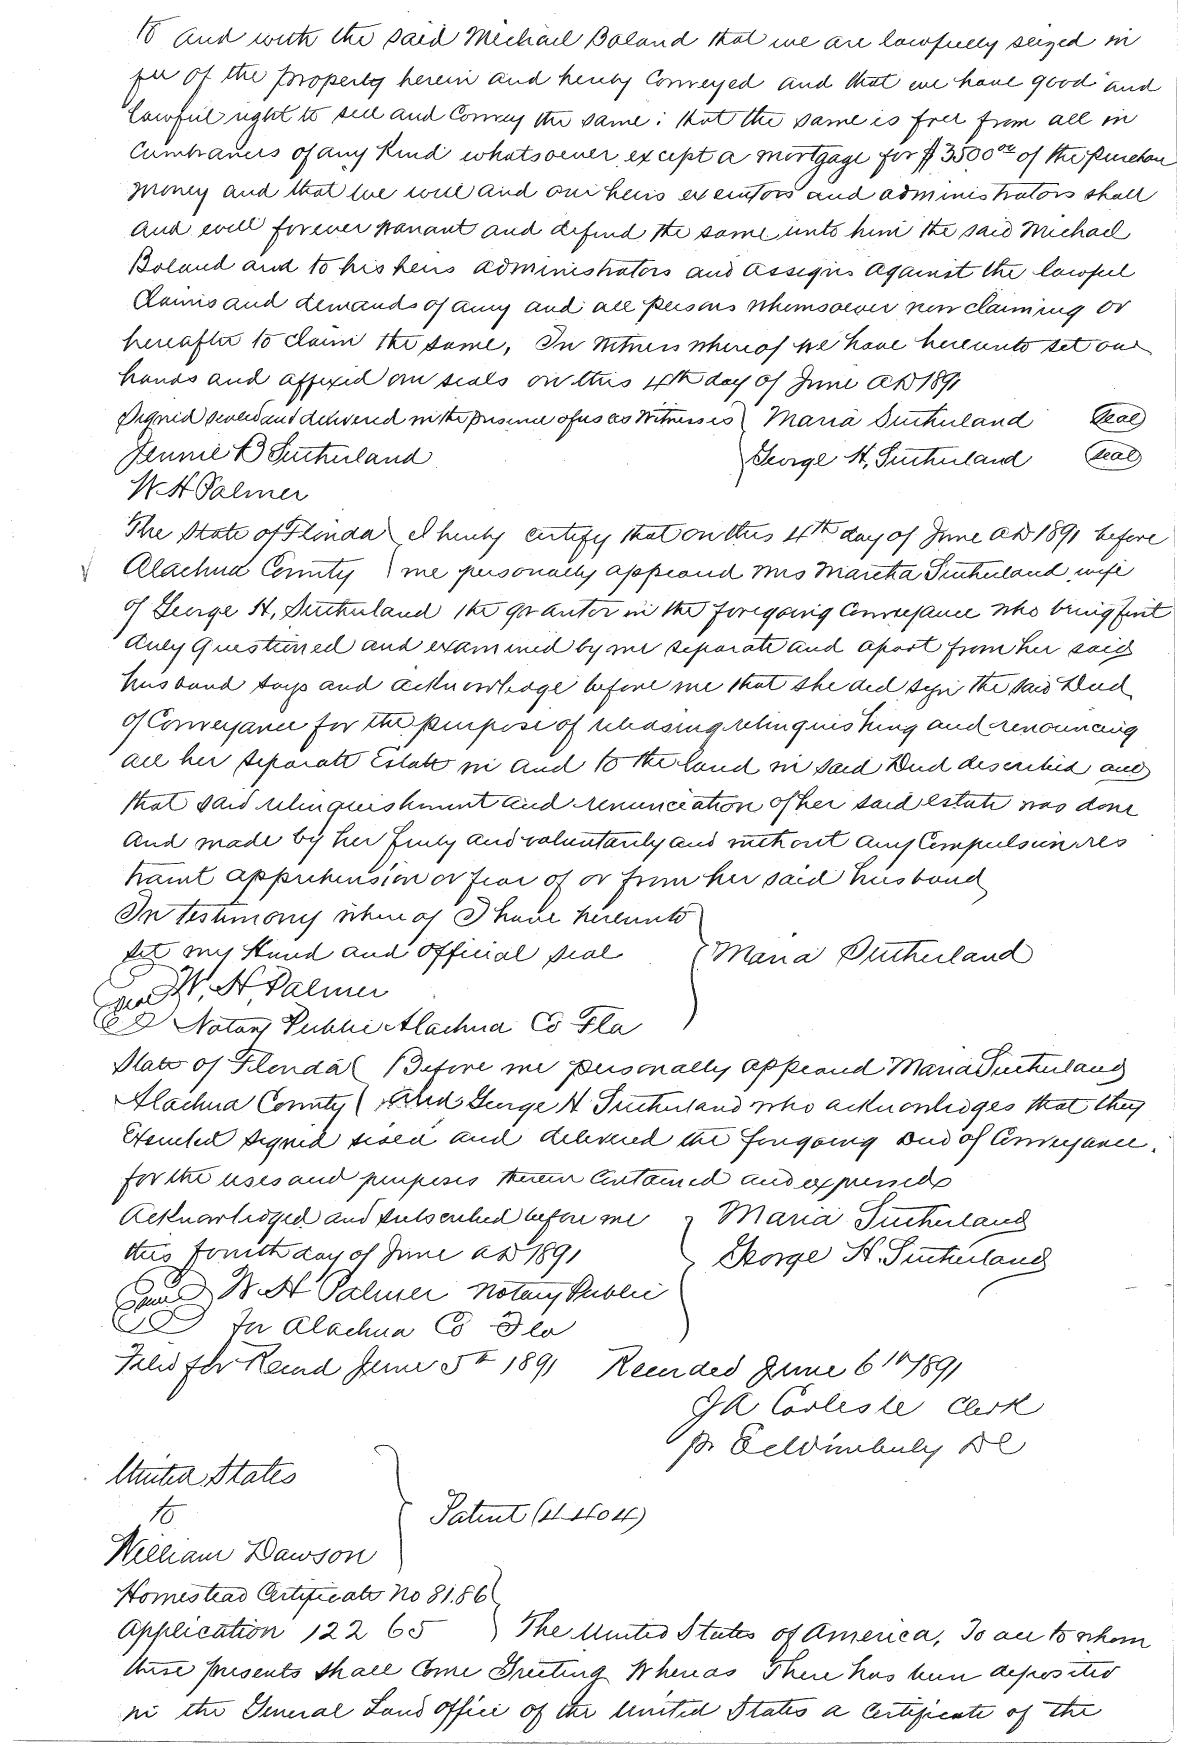 to and with the said Michael Boland that we are lawfully seized in
fee of the property herein and hereby Conveyed and that we have good and
lawful right to sell and Convey the same: that the same is free from all in
Cumbrances of any Kind whatsoever except a mortgage for $3500 00 of the purchase
money and that we will and our heirs executors and administrators shall
and will forever warrant and defend the same unto him the said Michael
Boland and to his heirs administrators and assigns against the lawful
Claims and demands of any and all persons whomsoever now claiming or
hereafter to claim the same, In Witness whereof we have hereunto set our
hands and affixed our seals on this 4th day of June AD 1891
Signed sealed and delivered in the presence of us as Witnesses } Maria Sutherland Seal
Jennie B Sutherland } George H, Sutherland Seal
W. H Palmer
The State of Florida } I hereby certify that on this 4th day of June AD 1891 before
Alachua County } me personally appeared Mrs Maretha Sutherland wife
of George H, Sutherland the grantor in the foregoing Conveyance who being first
duly questioned and examined by me separate and apart from her said
husband says and acknowledge before me that she did sign the said Deed
of Conveyance for the purpose of releasing relinquishing and renouncing
all her separate Estate in and to the land in said Deed described and
that said relinquishment and renunciation of her said estate was done
and made by her freely and voluntarily and without any Compulsion res
traint apprehension or fear of or from her said husband
In testimony where of I have hereunto
set my Hand and official seal } Maria Sutherland
Seal W. H. Palmer
Notary Public Alachua Co Fla
State of Florida } Before me personally appeared Maria Sutherland
Alachua County } and George H Sutherland who acknowledges that they
Executed signed sealed and delivered the foregoing Deed of Conveyance.
for the uses and purposes therein Contained and expressed
Acknowledged and subscribed before me } Maria Sutherland
this fourth day of June AD 1891 } George H. Sutherland
Seal W H Palmer Notary Public
for Alachua Co Fla
Filed for Record June 5th 1891 Recorded June 6th 1891
J A Carlisle Clerk
pr E C Wimberly DC
United States
to } Patent (4404)
William Dawson
Homestead Certificate No 8186 }
Application 12265 } The United States of America, To all to whom
these presents shall Come Greeting Whereas There has been deposited
in the General Land office of the United States a Certificate of the